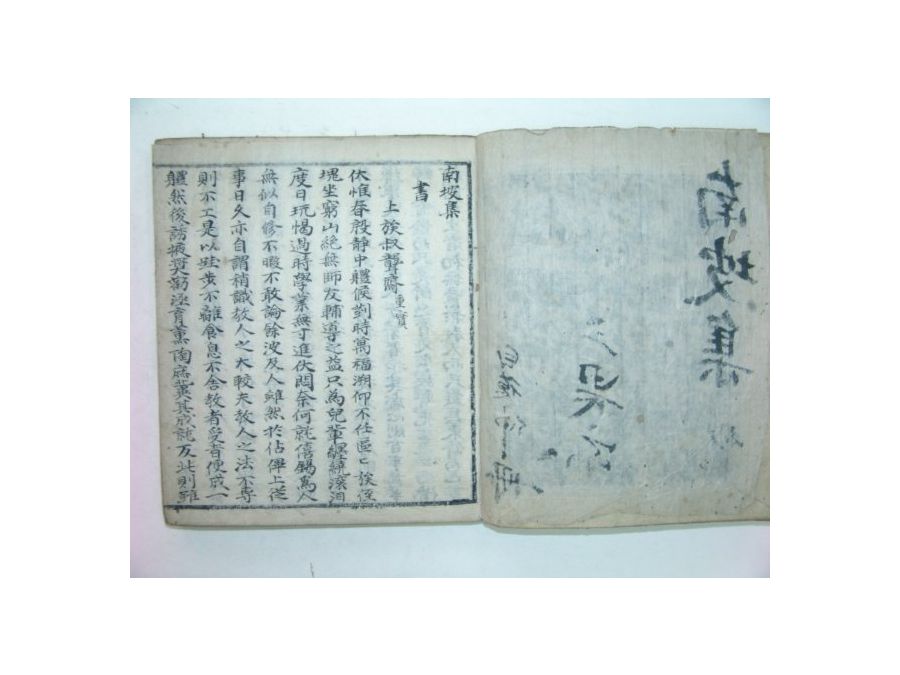 南坡集
南坡集
書
上族叔聾齋重寶
伏惟春殷靜中軆候對時萬福溯仰不任區〻族侄
塊坐窮山絶無師友輔導之益只為兒軰纒繞滚汩
度日玩愒過時學業無寸進伏悶奈何就僖錫為人
無似自修不暇不敢論餘波及人雖然於佔俾上從
事日久亦自謂稍識敎人之大較夫敎人之法不專
則不工是以跬步不離食息不舍敎者受者便成一
軆然後誘掖奬勸涵育薰陶庶冀其成就反此則雖